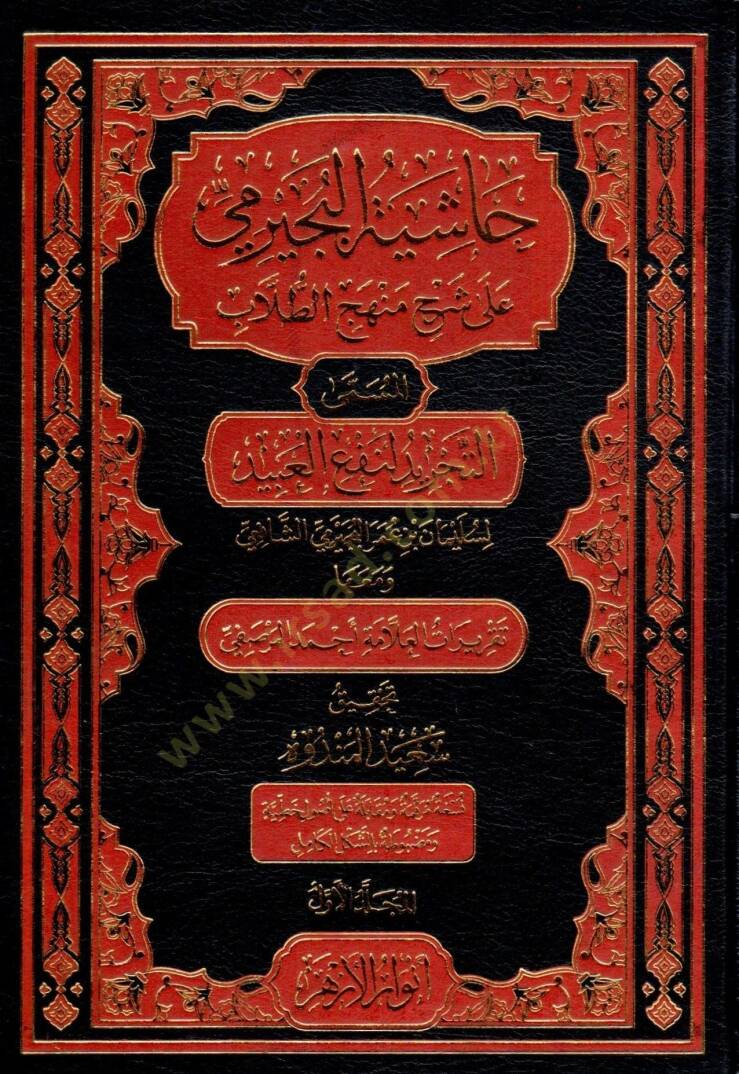 حاشية البجيرمي
على شرح منهج الطلاب
المسمى
التجريد لنفع العبيد
لسليمان بن عمر البجيرمي الشافعي
ومعها
تقريرات العلامة أحمد المرصفي
تحقيق
سعيد المندوه
نسخة ومقابلة على أصول خطية
ومضبوطة بالشكل الكامل
المجلد الأول
أنوار الأزهر